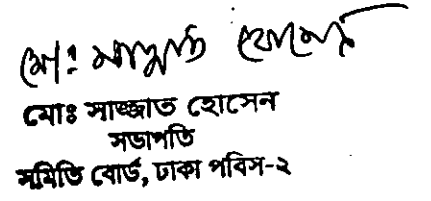 মোঃ সাজ্জাত হোসেন
মোঃ সাজ্জাত হোসেন
সভাপতি
সমিতি বোর্ড, ঢাকা পবিস-২